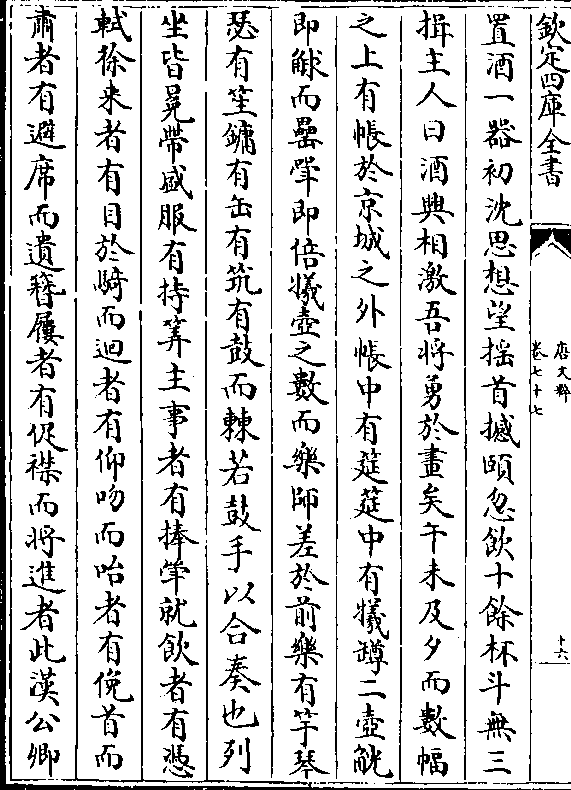 欽定四庫全書
唐文粹
卷七十七
十六
置酒一器初沈思想望摇首撼頤忽飲十餘杯斗無三
揖主人曰酒興相激吾將勇於畫矣午未及夕而數幅
之上有帳於京城之外帳中有筵筵中有犧罇二壺觥
即觩而罍斝即倍犧壺之數而樂師差於前樂有竽琴
瑟有笙鏞有缶有筑有鼓而棘若鼓手以合奏也列
坐皆冕帶盛服有持筭主事者有捧斝就飲者有憑
軾徐来者有目於騎而迴者有仰吻而咍者有俛首而
肅者有避席而遺簪屨者有促襟而將進者此漢公卿